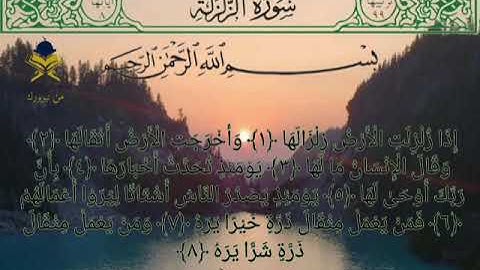 سورة الزلزلة
آياتها ٨
ترتيبها ٩٩
من نيويورك
بسم الله الرحمن الرحيم
إِذَا زُلْزِلَتِ الْأَرْضُ زِلْزَالَهَا ﴿١﴾ وَأَخْرَجَتِ الْأَرْضُ أَثْقَالَهَا ﴿٢﴾
وَقَالَ الْإِنْسَانُ مَا لَهَا ﴿٣﴾ يَوْمَئِذٍ تُحَدِّثُ أَخْبَارَهَا ﴿٤﴾ بِأَنَّ
رَبَّكَ أَوْحَىٰ لَهَا ﴿٥﴾ يَوْمَئِذٍ يَصْدُرُ النَّاسُ أَشْتَاتًا لِيُرَوْا أَعْمَالَهُمْ
﴿٦﴾ فَمَنْ يَعْمَلْ مِثْقَالَ ذَرَّةٍ خَيْرًا يَرَهُ ﴿٧﴾ وَمَنْ يَعْمَلْ مِثْقَالَ
ذَرَّةٍ شَرًّا يَرَهُ ﴿٨﴾